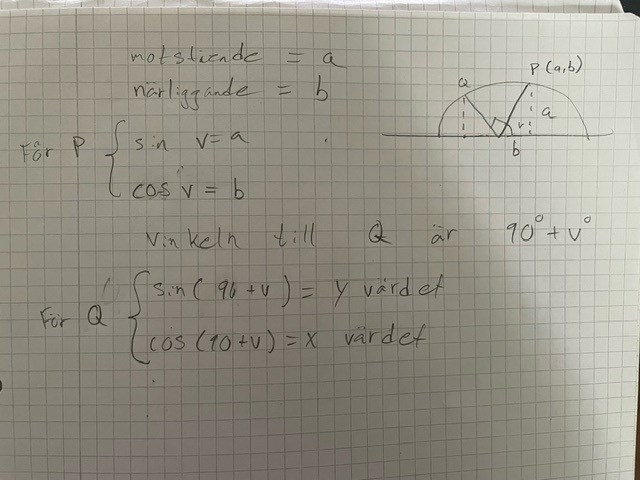 motstående = a
närliggande = b
För P { sin v = a
cos v = b
Q
P (a,b)
a
v
b
Vinkeln till Q är 90° + v°
För Q { sin( 90 + v ) = y värdet
cos (90+v) = x värdet